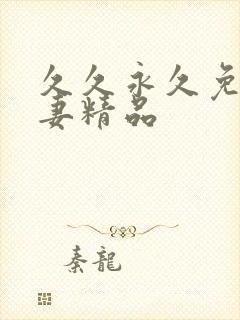 久久永久免
妻精品
秦龍